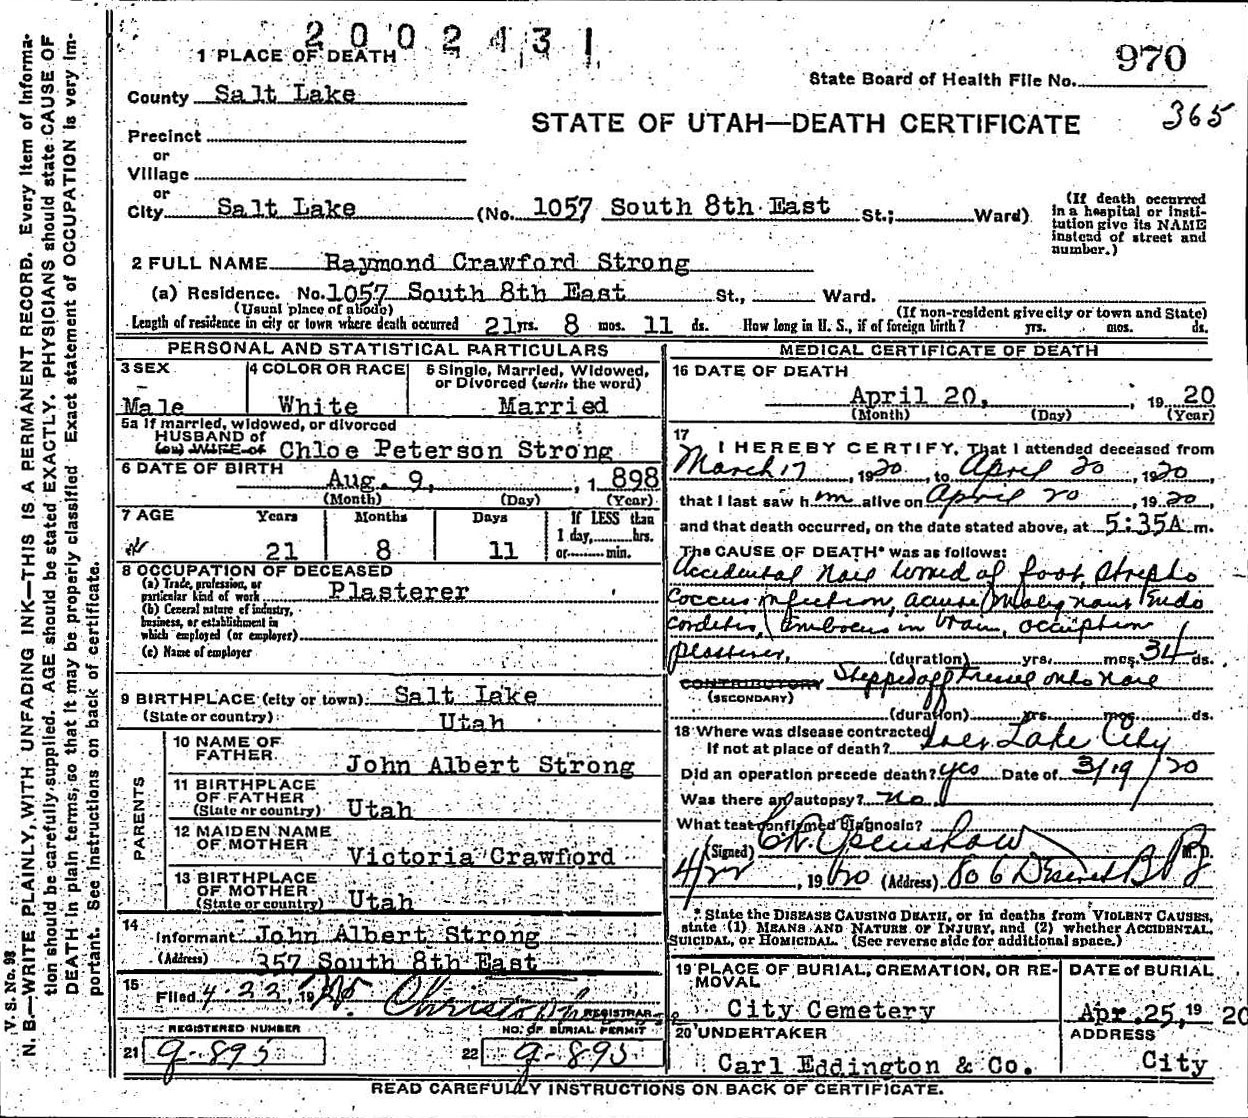 2002431
1 PLACE OF DEATH
970
State Board of Health File No.
365
County Salt Lake
STATE OF UTAH—DEATH CERTIFICATE
Precinct
or
Village
or
City Salt Lake (No. 1057 South 8th East St.; Ward)
(If death occurred in a hospital or insti-
tution give its NAME
instead of street and
number.)
2 FULL NAME Raymond Crawford Strong
(a) Residence. No. 1057 South 8th East St., Ward.
(Usual place of abode) (If non-resident give city or town and State)
Length of residence in city or town where death occurred 21 yrs. 8 mos. 11 ds. How long in U. S., if of foreign birth? yrs. mos. ds.
PERSONAL AND STATISTICAL PARTICULARS
3 SEX
Male
4 COLOR OR RACE
White
5 Single, Married, Widowed,
or Divorced (write the word)
Married
5a If married, widowed, or divorced
HUSBAND of
(or) WIFE of Chloe Peterson Strong
6 DATE OF BIRTH
Aug. 9, , 1 898
(Month) (Day) (Year)
7 AGE Years Months Days If LESS than
1 day, hrs.
21 8 11 or min.
8 OCCUPATION OF DECEASED
(a) Trade, profession, or
particular kind of work Plasterer
(b) General nature of industry,
business, or establishment in
which employed (or employer)
(c) Name of employer
9 BIRTHPLACE (city or town) Salt Lake
(State or country) Utah
PARENTS
10 NAME OF
FATHER John Albert Strong
11 BIRTHPLACE
OF FATHER
(State or country) Utah
12 MAIDEN NAME
OF MOTHER Victoria Crawford
13 BIRTHPLACE
OF MOTHER
(State or country) Utah
14
Informant John Albert Strong
(Address) 357 South 8th East
15
Filed 4-22, 19
REGISTRAR
REGISTERED NUMBER
21 9-895
NO. OF BURIAL PERMIT
22 9-895
MEDICAL CERTIFICATE OF DEATH
16 DATE OF DEATH
April 20, , 19 20
(Month) (Day) (Year)
17
I HEREBY CERTIFY, That I attended deceased from
March 17, 1920, to April 20, 1920,
that I last saw h im alive on April 20, 1920
and that death occurred, on the date stated above, at 5:35A m.
The CAUSE OF DEATH* was as follows:
Accidental Nail wound of foot, Strepto
coccus infection, acute Malignant Endo
carditis, Embolus in brain, occupation
plasterer. (duration) yrs. mos. 34 ds.
CONTRIBUTORY Stepped off tressel onto Nail
(SECONDARY)
(duration) yrs. mos. ds.
18 Where was disease contracted
If not at place of death? Salt Lake City
Did an operation precede death? yes Date of 3/19/20
Was there an autopsy? no
What test confirmed diagnosis?
(Signed) Openshaw M. D.
4/22, 1920 (Address) 806 Deseret
* State the DISEASE CAUSING DEATH, or in deaths from VIOLENT CAUSES,
state (1) MEANS AND NATURE OF INJURY, and (2) whether ACCIDENTAL,
SUICIDAL, or HOMICIDAL. (See reverse side for additional space.)
19 PLACE OF BURIAL, CREMATION, OR RE-
MOVAL
City Cemetery
DATE of BURIAL
Apr. 25, 19 20
20 UNDERTAKER
Carl Eddington & Co.
ADDRESS
City
READ CAREFULLY INSTRUCTIONS ON BACK OF CERTIFICATE.
V. S. No. 98
N. B.—WRITE PLAINLY, WITH UNFADING INK—THIS IS A PERMANENT RECORD. Every item of informa-
tion should be carefully supplied. AGE should be stated EXACTLY. PHYSICIANS should state CAUSE OF
DEATH in plain terms, so that it may be properly classified. Exact statement of OCCUPATION is very im-
portant. See instructions on back of certificate.